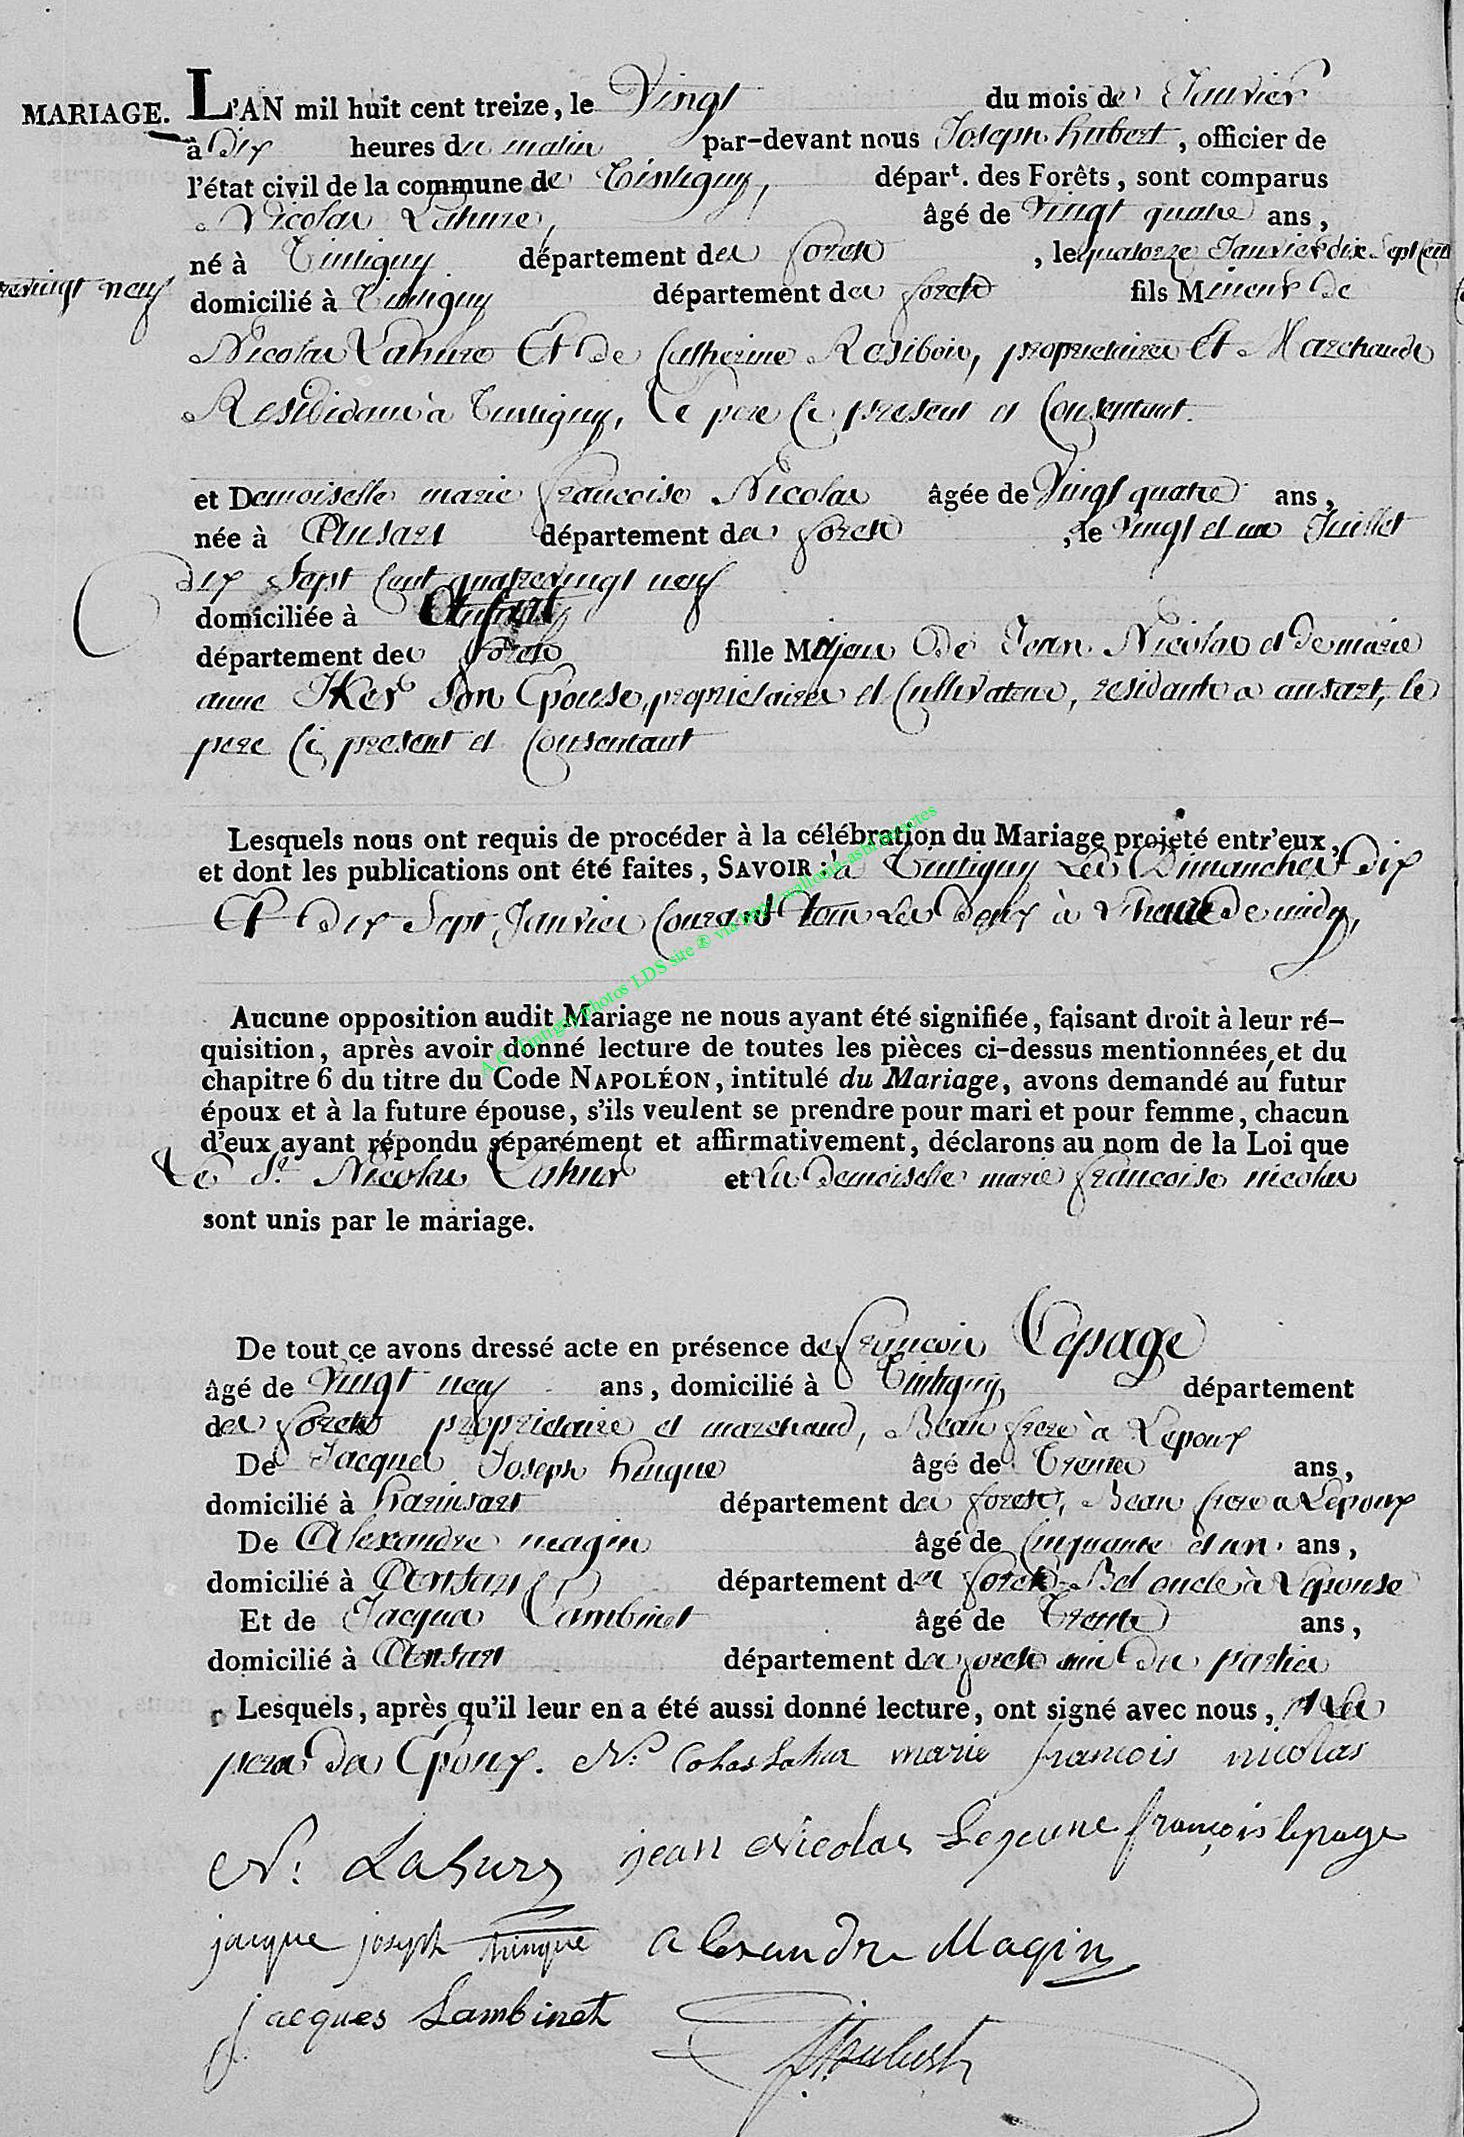 MARIAGE. L'AN mil huit cent treize, le Vingt du mois de Janvier
à Dix heures du matin par-devant nous Joseph hubert, officier de
l'état civil de la commune de Tintigny, départ. des Forêts, sont comparus
Nicolas Lahure, âgé de Vingt quatre ans,
né à Tintigny département des forets, le quatorze Janvier dix Sept Cent
vingt neuf domicilié à Tintigny département des forets fils Mineur de
Nicolas Lahure Et de Catherine Rosibois, proprietaires Et Marchands
Residans à Tintigny, Le pere Ci present et Consentant.
et Demoiselle marie francoise Nicolas âgée de Vingt quatre ans,
née à Ansart département des forets, le Vingt et un Juillet
dix Sept Cent quatrevingt neuf
domiciliée à Ansart
département des forets fille Majeur De Jean Nicolas et De marie
anne Son Epouse, proprietaires et Cultivateurs, residants a ansart, le
pere Ci present et Consentant
Lesquels nous ont requis de procéder à la célébration du Mariage projeté entr'eux,
et dont les publications ont été faites, SAVOIR : à Tintigny Les Dimanches Dix
Et Dix Sept Janvier Courant tous Les Deux à L'heure De midy,
Aucune opposition audit Mariage ne nous ayant été signifiée, faisant droit à leur ré-
quisition, après avoir donné lecture de toutes les pièces ci-dessus mentionnées, et du
chapitre 6 du titre du Code NAPOLÉON, intitulé du Mariage, avons demandé au futur
époux et à la future épouse, s'ils veulent se prendre pour mari et pour femme, chacun
d'eux ayant répondu séparément et affirmativement, déclarons au nom de la Loi que
Le Sr. Nicolas Lahure et La Demoiselle marie francoise nicolas
sont unis par le mariage.
De tout ce avons dressé acte en présence de francois Lepage
âgé de Vingt neuf ans, domicilié à Tintigny, département
des forets proprietaire et marchand, Beau frere à L'epoux
De Jacques Joseph hinque âgé de Trente ans,
domicilié à harinsart département des forets, Beau frere a L'epoux
De Alexandre magin âgé de Cinquante et un ans,
domicilié à Ansart département des forets Bel oncle à L'epouse
Et de Jacques Lambinet âgé de Trente ans,
domicilié à Ansart département des forets ami du parties
Lesquels, après qu'il leur en a été aussi donné lecture, ont signé avec nous, et Les
peres Des Epoux. Colas Lahur marie francois nicolas
N: Lahure jean Nicolas Lejeune françois lepage
jacque joseph hinque alexandre Magin
jacques Lambinet
J. Hubert
A.C. Tintigny photos LDS site ® via http://wallonia-asbl.be/actes